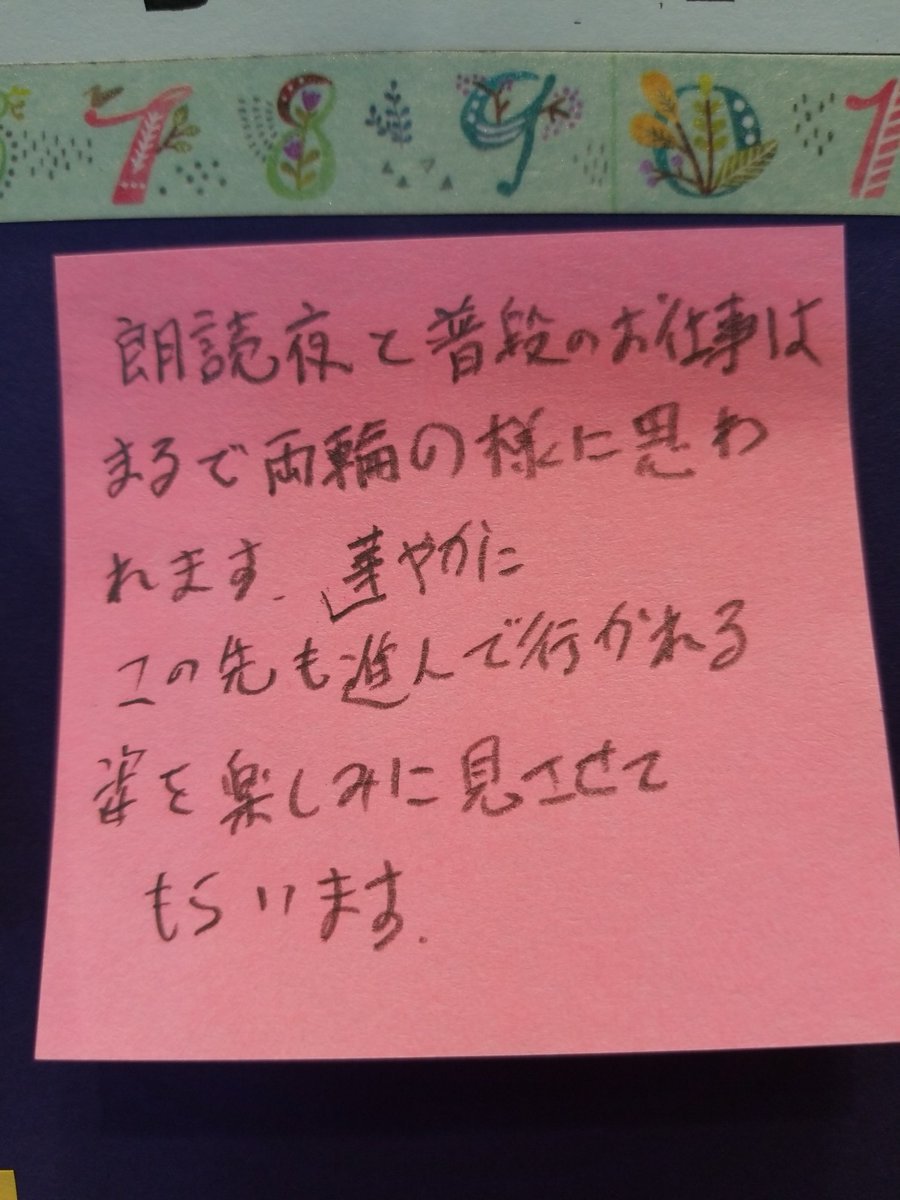 7 8 9 0 1
朗読夜と普段のお仕事は
まるで両輪の様に思わ
れます. 華やかに
この先も進んで行かれる
姿を楽しみに見させて
もらいます.